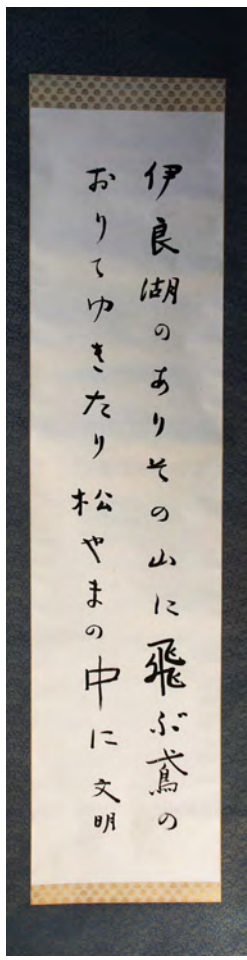 伊良湖のありその山に飛ぶ鳶の
おりてゆきたり松やまの中に 文明